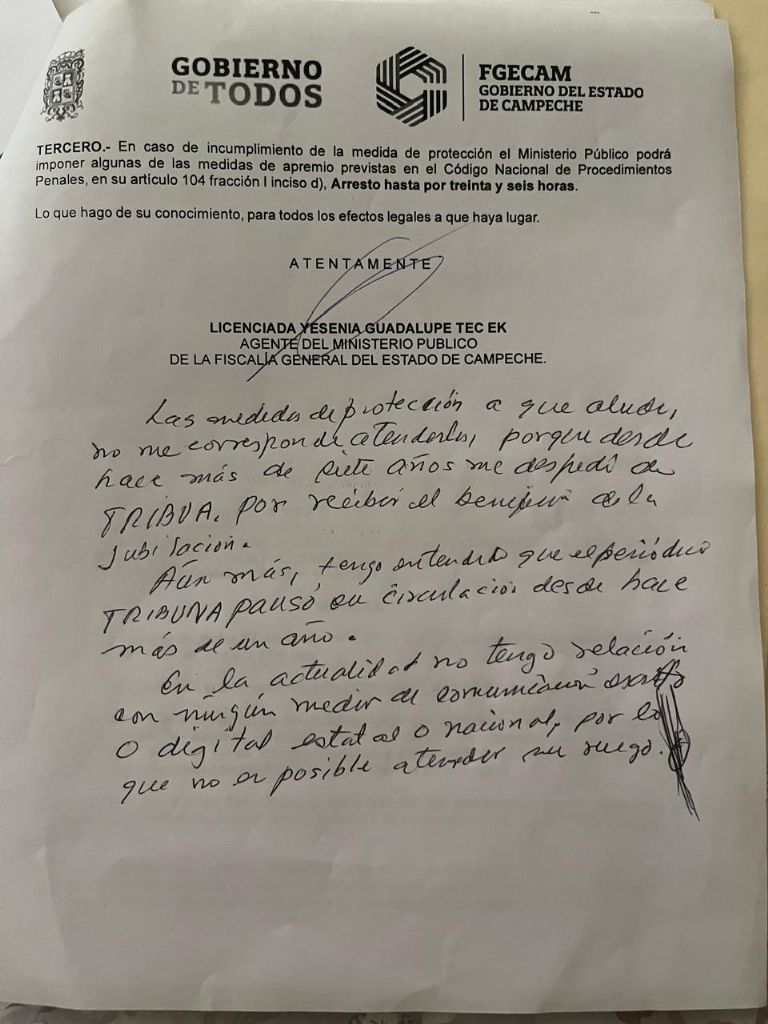 GOBIERNO
DE TODOS
FGECAM
GOBIERNO DEL ESTADO
DE CAMPECHE
TERCERO.- En caso de incumplimiento de la medida de protección el Ministerio Público podrá
imponer algunas de las medidas de apremio previstas en el Código Nacional de Procedimientos
Penales, en su artículo 104 fracción I inciso d), Arresto hasta por treinta y seis horas.
Lo que hago de su conocimiento, para todos los efectos legales a que haya lugar.
ATENTAMENTE
LICENCIADA YESENIA GUADALUPE TEC EK
AGENTE DEL MINISTERIO PUBLICO
DE LA FISCALÍA GENERAL DEL ESTADO DE CAMPECHE.
Las medidas de protección a que alude,
no me corresponde atenderlas, porque desde
hace más de siete años me despedí de
TRIBUA, por recibir el beneficio de la
jubilación.
Aún más, tengo entendido que el periódico
TRIBUNA pausó su circulación desde hace
más de un año.
En la actualidad no tengo relación
con ningún medio de comunicación escrito
o digital estatal o nacional, por lo
que no es posible atender su ruego.